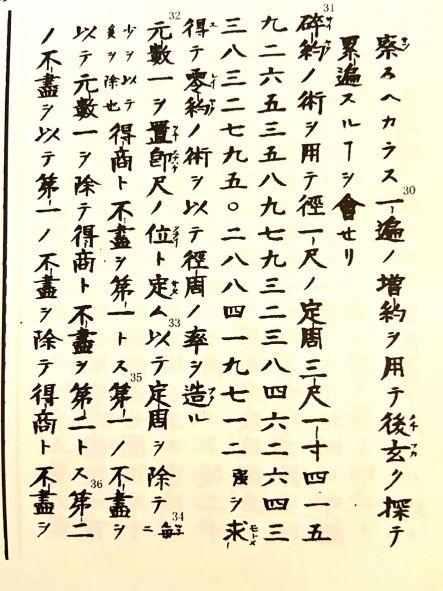 察スヘカラス30一遍ノ増約ヲ用テ後玄ク探テ
累遍スルヿヲ會セリ
31碎約ノ術ヲ用テ徑一尺ノ定周三尺一寸四一五
九二六五三五八九七九三二三八四六二六四三
三八三二七九五〇二八八四一九七一二強ヲ求
得テ零約ノ術ヲ以テ徑周ノ率ヲ造ル
32元數一ヲ置即尺ノ位ト定ム33以テ定周ヲ除テ34毎ニ
少ヲ以テ多ヲ除也得商ト不盡ヲ第一トス35第一ノ不盡ヲ
以テ元數一ヲ除テ得商ト不盡ヲ第二トス36第二
ノ不盡ヲ以テ第一ノ不盡ヲ除テ得商ト不盡ヲ